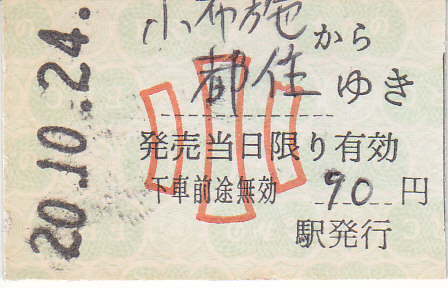 小布施から
都住ゆき
小
発売当日限り有効
下車前途無効 90円
駅発行
20.10.24.